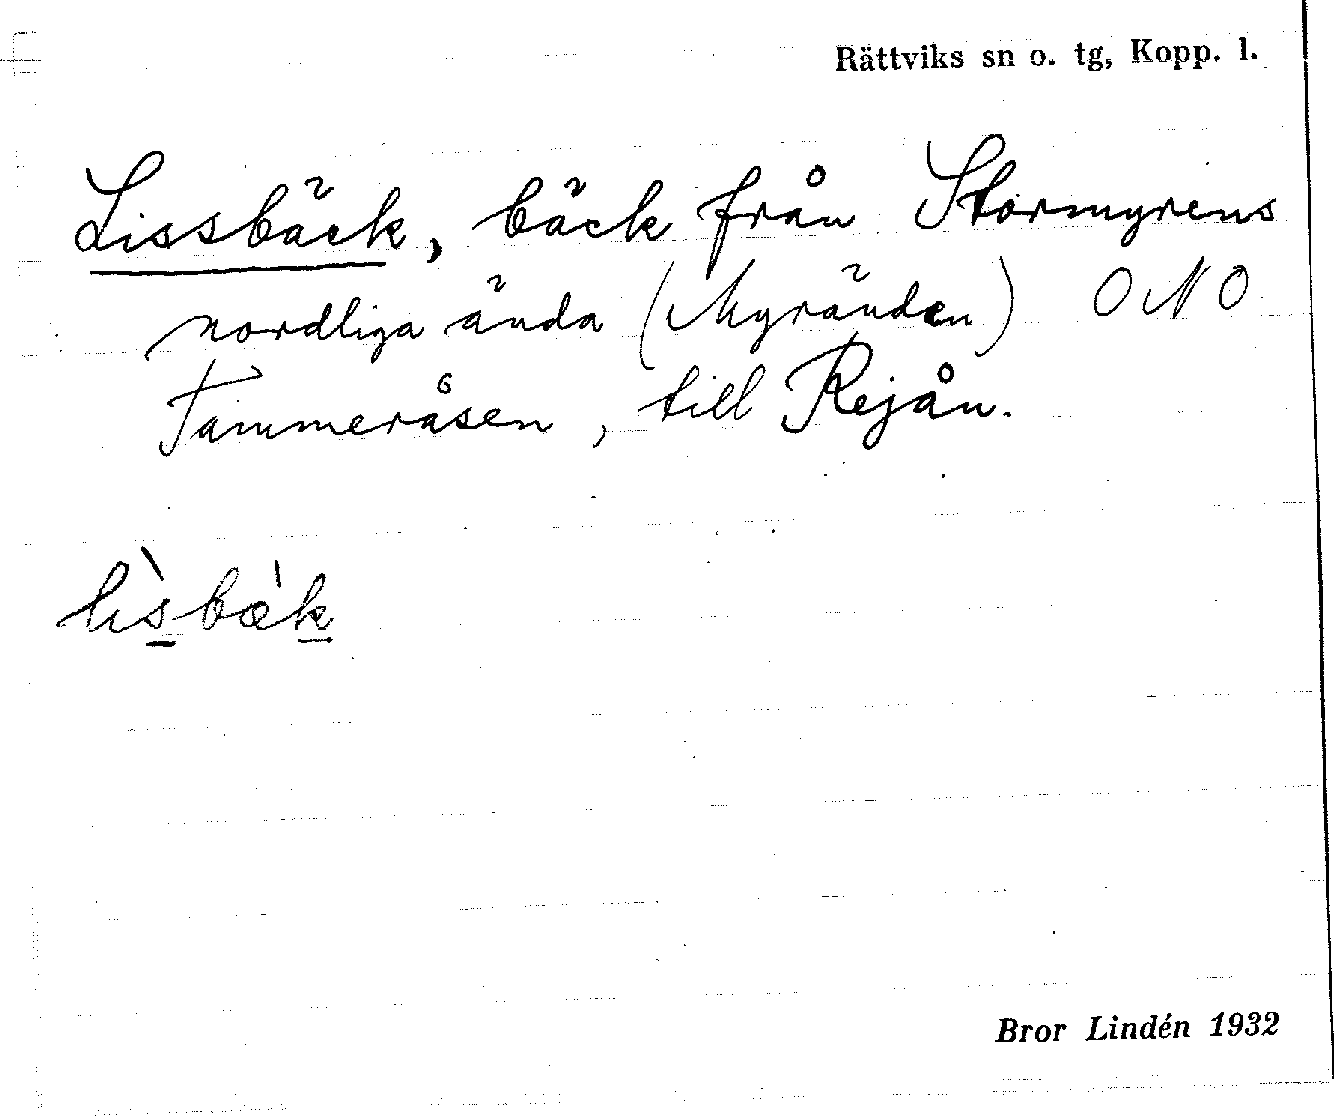 Rättviks sn o. tg, Kopp. l.
Lissbäck, bäck från Stormyrens
nordliga ända (Myränden) ONO
Tammeråsen, till Rejån.
lìsbæ̀k
Bror Lindén 1932